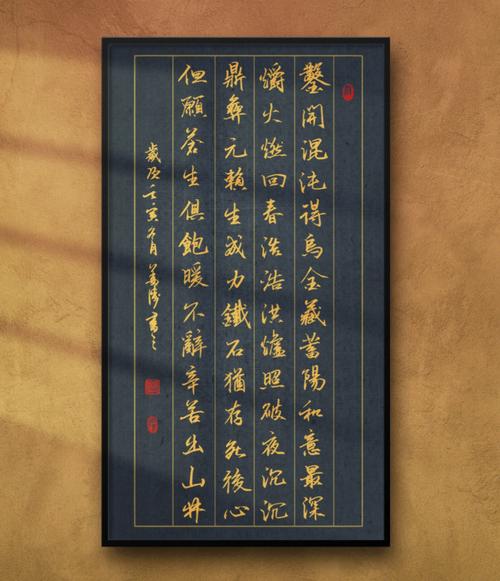 鑿開混沌得烏金藏蓄陽和意最深
爝火燃回春浩浩洪爐照破夜沉沉
鼎彝元賴生成力鐵石猶存死後心
但願蒼生俱飽暖不辭辛苦出山林
歲次壬寅冬月書之